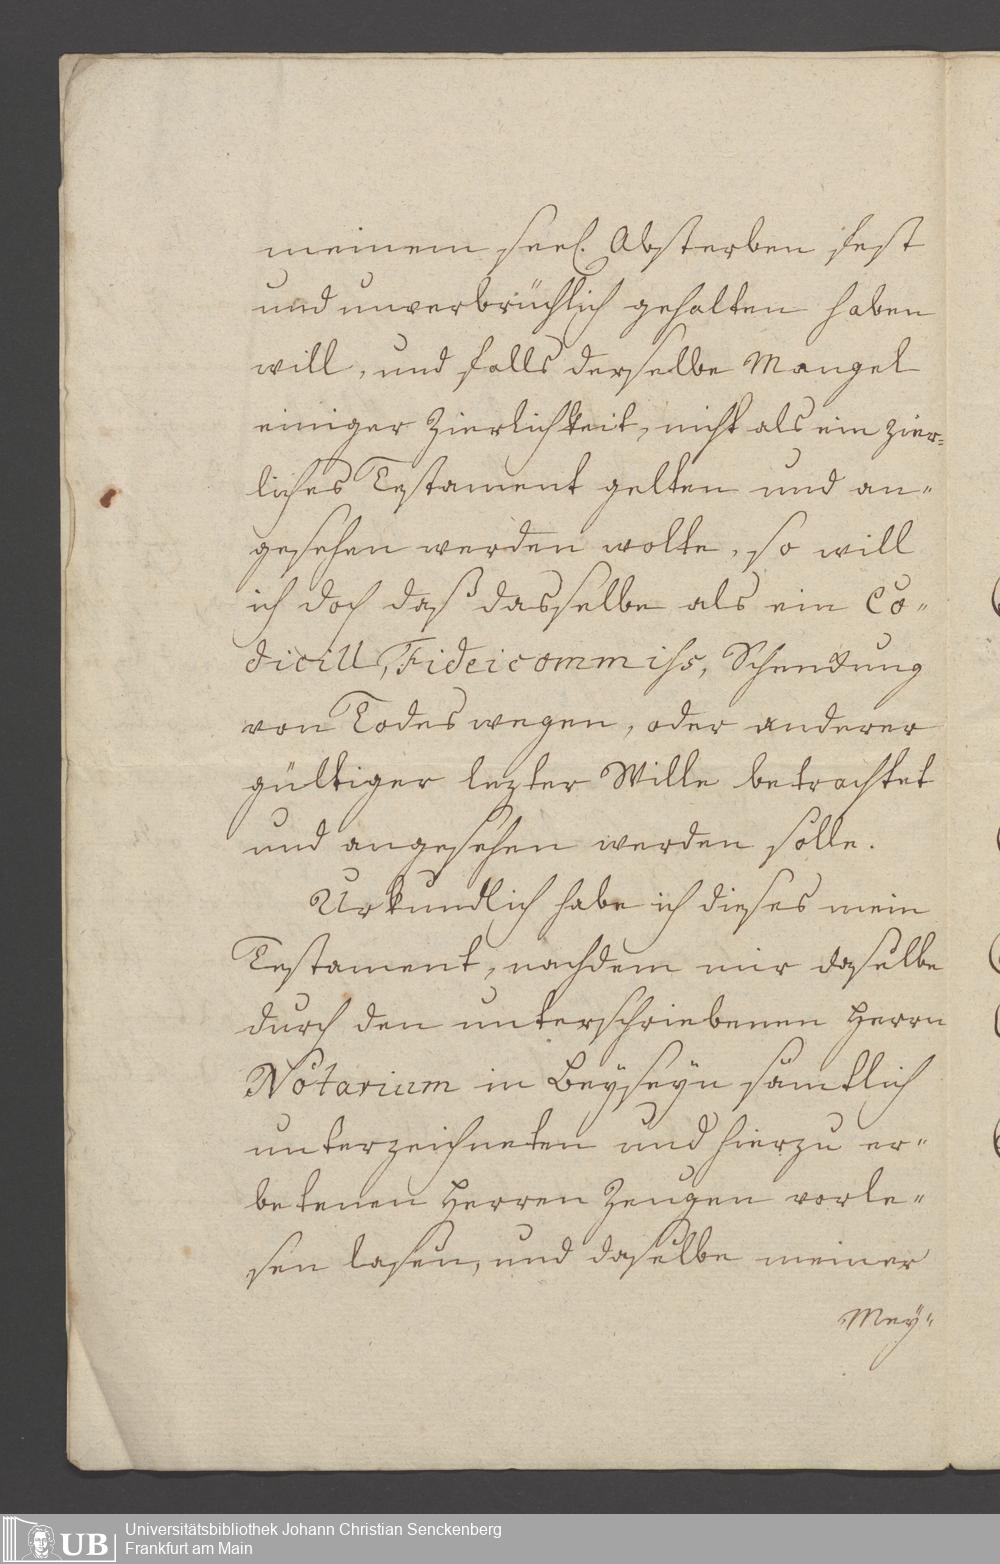 meinem seel. Absterben fest
und unverbrüchlich gehalten haben
will, und falls derselbe Mangel
einiger Zierlichkeit, nicht als ein zier=
liches Testament gelten und an„
gesehen werden wolte, so will
ich doch daß dasselbe als ein Co„
dicill, Fideicommiss, Schenkung
von Todes wegen, oder anderer
gültiger lezter Wille betrachtet
und angesehen werden solle.
Urkundlich habe ich dieses mein
Testament, nachdem mir daselbe
durch den unterschriebenen Herrn
Notarium in Beyseyn sämtlich
unterzeichneten und hierzu er„
betenen Herren Zeugen vorle„
sen lasen, und daselbe meiner
Mey„
UB Universitätsbibliothek Johann Christian Senckenberg
Frankfurt am Main